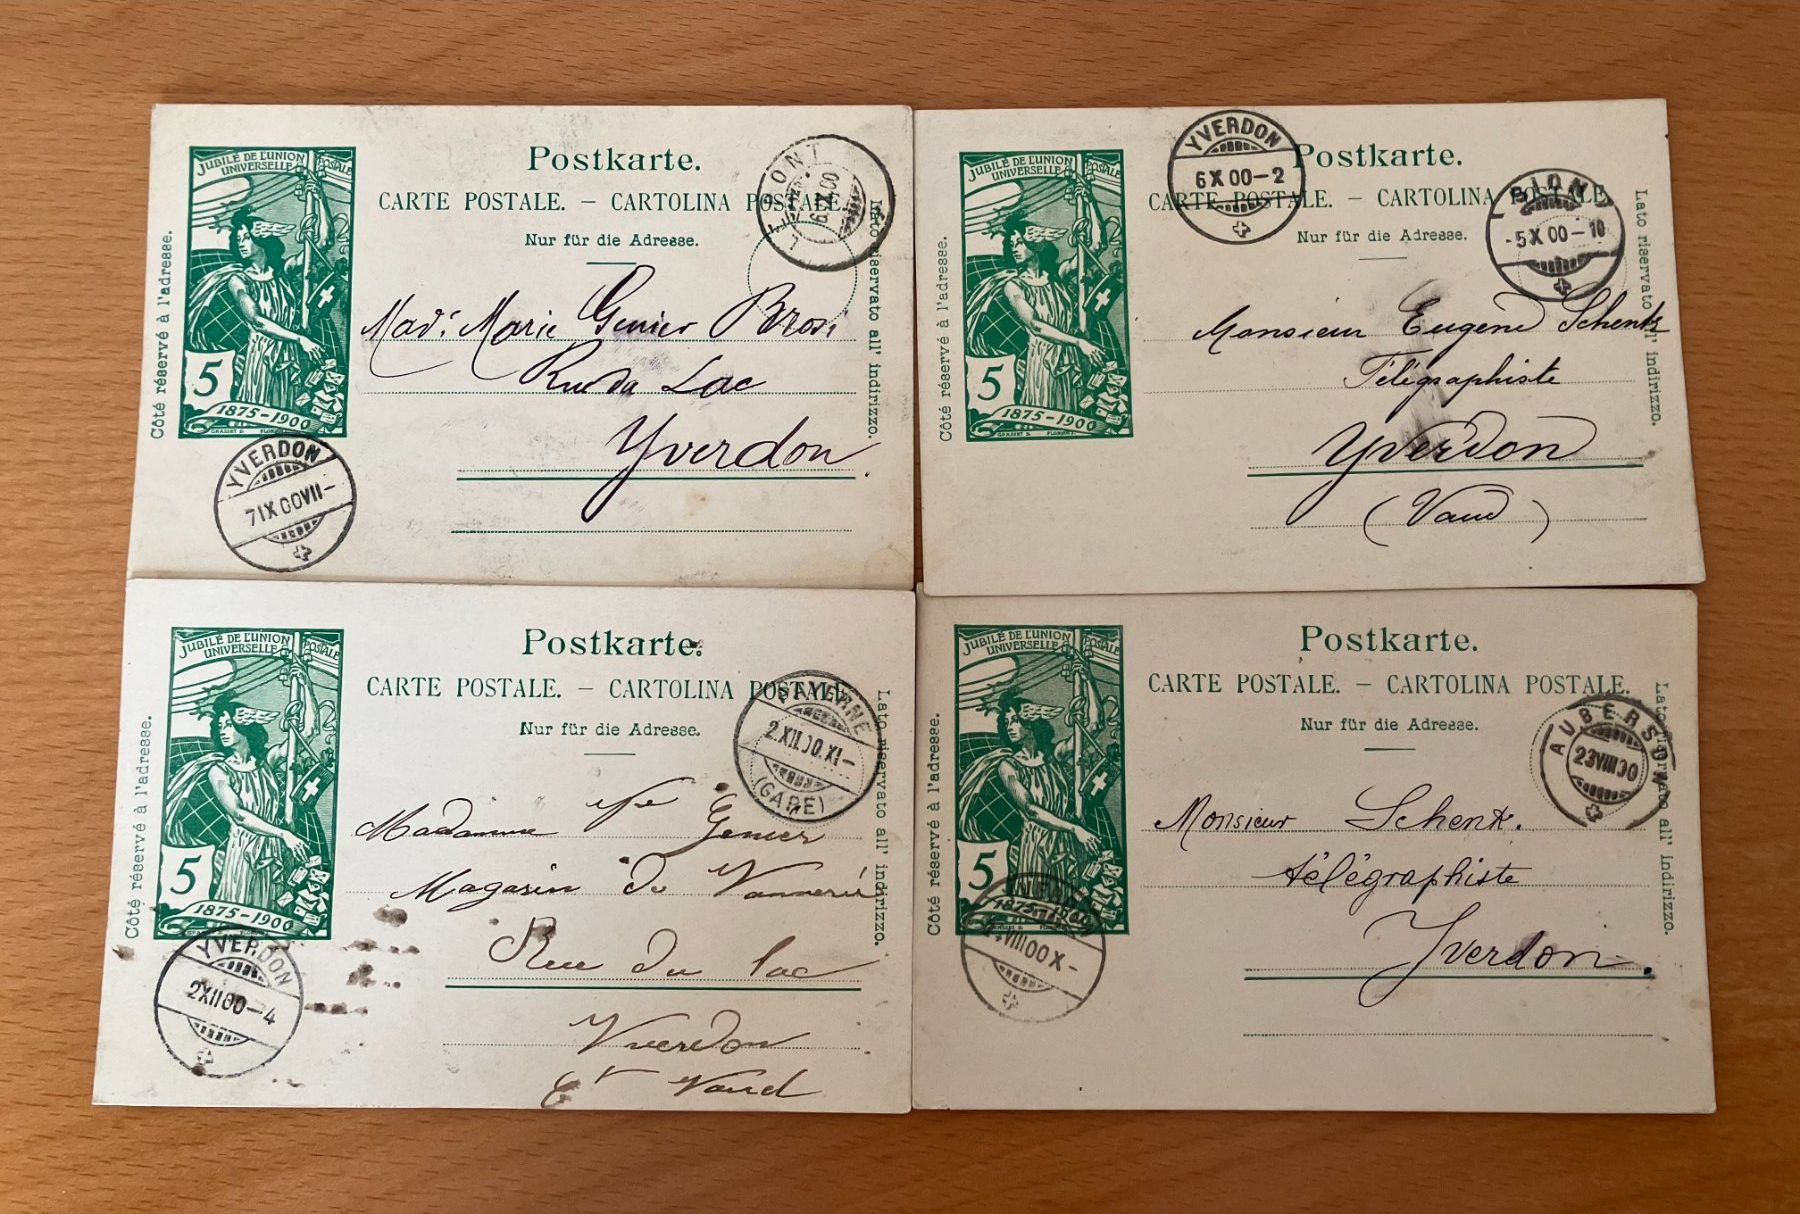 JUBILÉ DE L'UNION POSTALE
UNIVERSELLE
5
1875-1900
GRASSET D.
Côté réservé à l'adresse.
Postkarte.
CARTE POSTALE. — CARTOLINA POSTALE.
Nur für die Adresse.
Lato riservato all' indirizzo.
YVERDON
7 IX 00 VII-
Marie Genier
Lac
Yverdon.
JUBILÉ DE L'UNION POSTALE
UNIVERSELLE
5
1875-1900
GRASSET D.
Côté réservé à l'adresse.
Postkarte.
CARTE POSTALE. — CARTOLINA POSTALE.
Nur für die Adresse.
Lato riservato all' indirizzo.
YVERDON
6 X 00-2
SION
-5 X 00-10
Monsieur Eugène Schenk
Télégraphiste
Yverdon
(Vaud)
JUBILÉ DE L'UNION POSTALE
UNIVERSELLE
5
1875-1900
Côté réservé à l'adresse.
Postkarte.
CARTE POSTALE. — CARTOLINA POSTALE.
Nur für die Adresse.
Lato riservato all' indirizzo.
PAYERNE
2.XII.00.XI-
(GARE)
YVERDON
2 XII 00-4
Madame Genier
Magasin de Vannerie
Rue du lac
Yverdon
Ct Vaud
JUBILÉ DE L'UNION POSTALE
UNIVERSELLE
5
1875-1900
Côté réservé à l'adresse.
Postkarte.
CARTE POSTALE. — CARTOLINA POSTALE.
Nur für die Adresse.
Lato riservato all' indirizzo.
AUBERSON
23 VIII 00
VIII 00 X-
Monsieur Schenk.
télégraphiste
Yverdon.